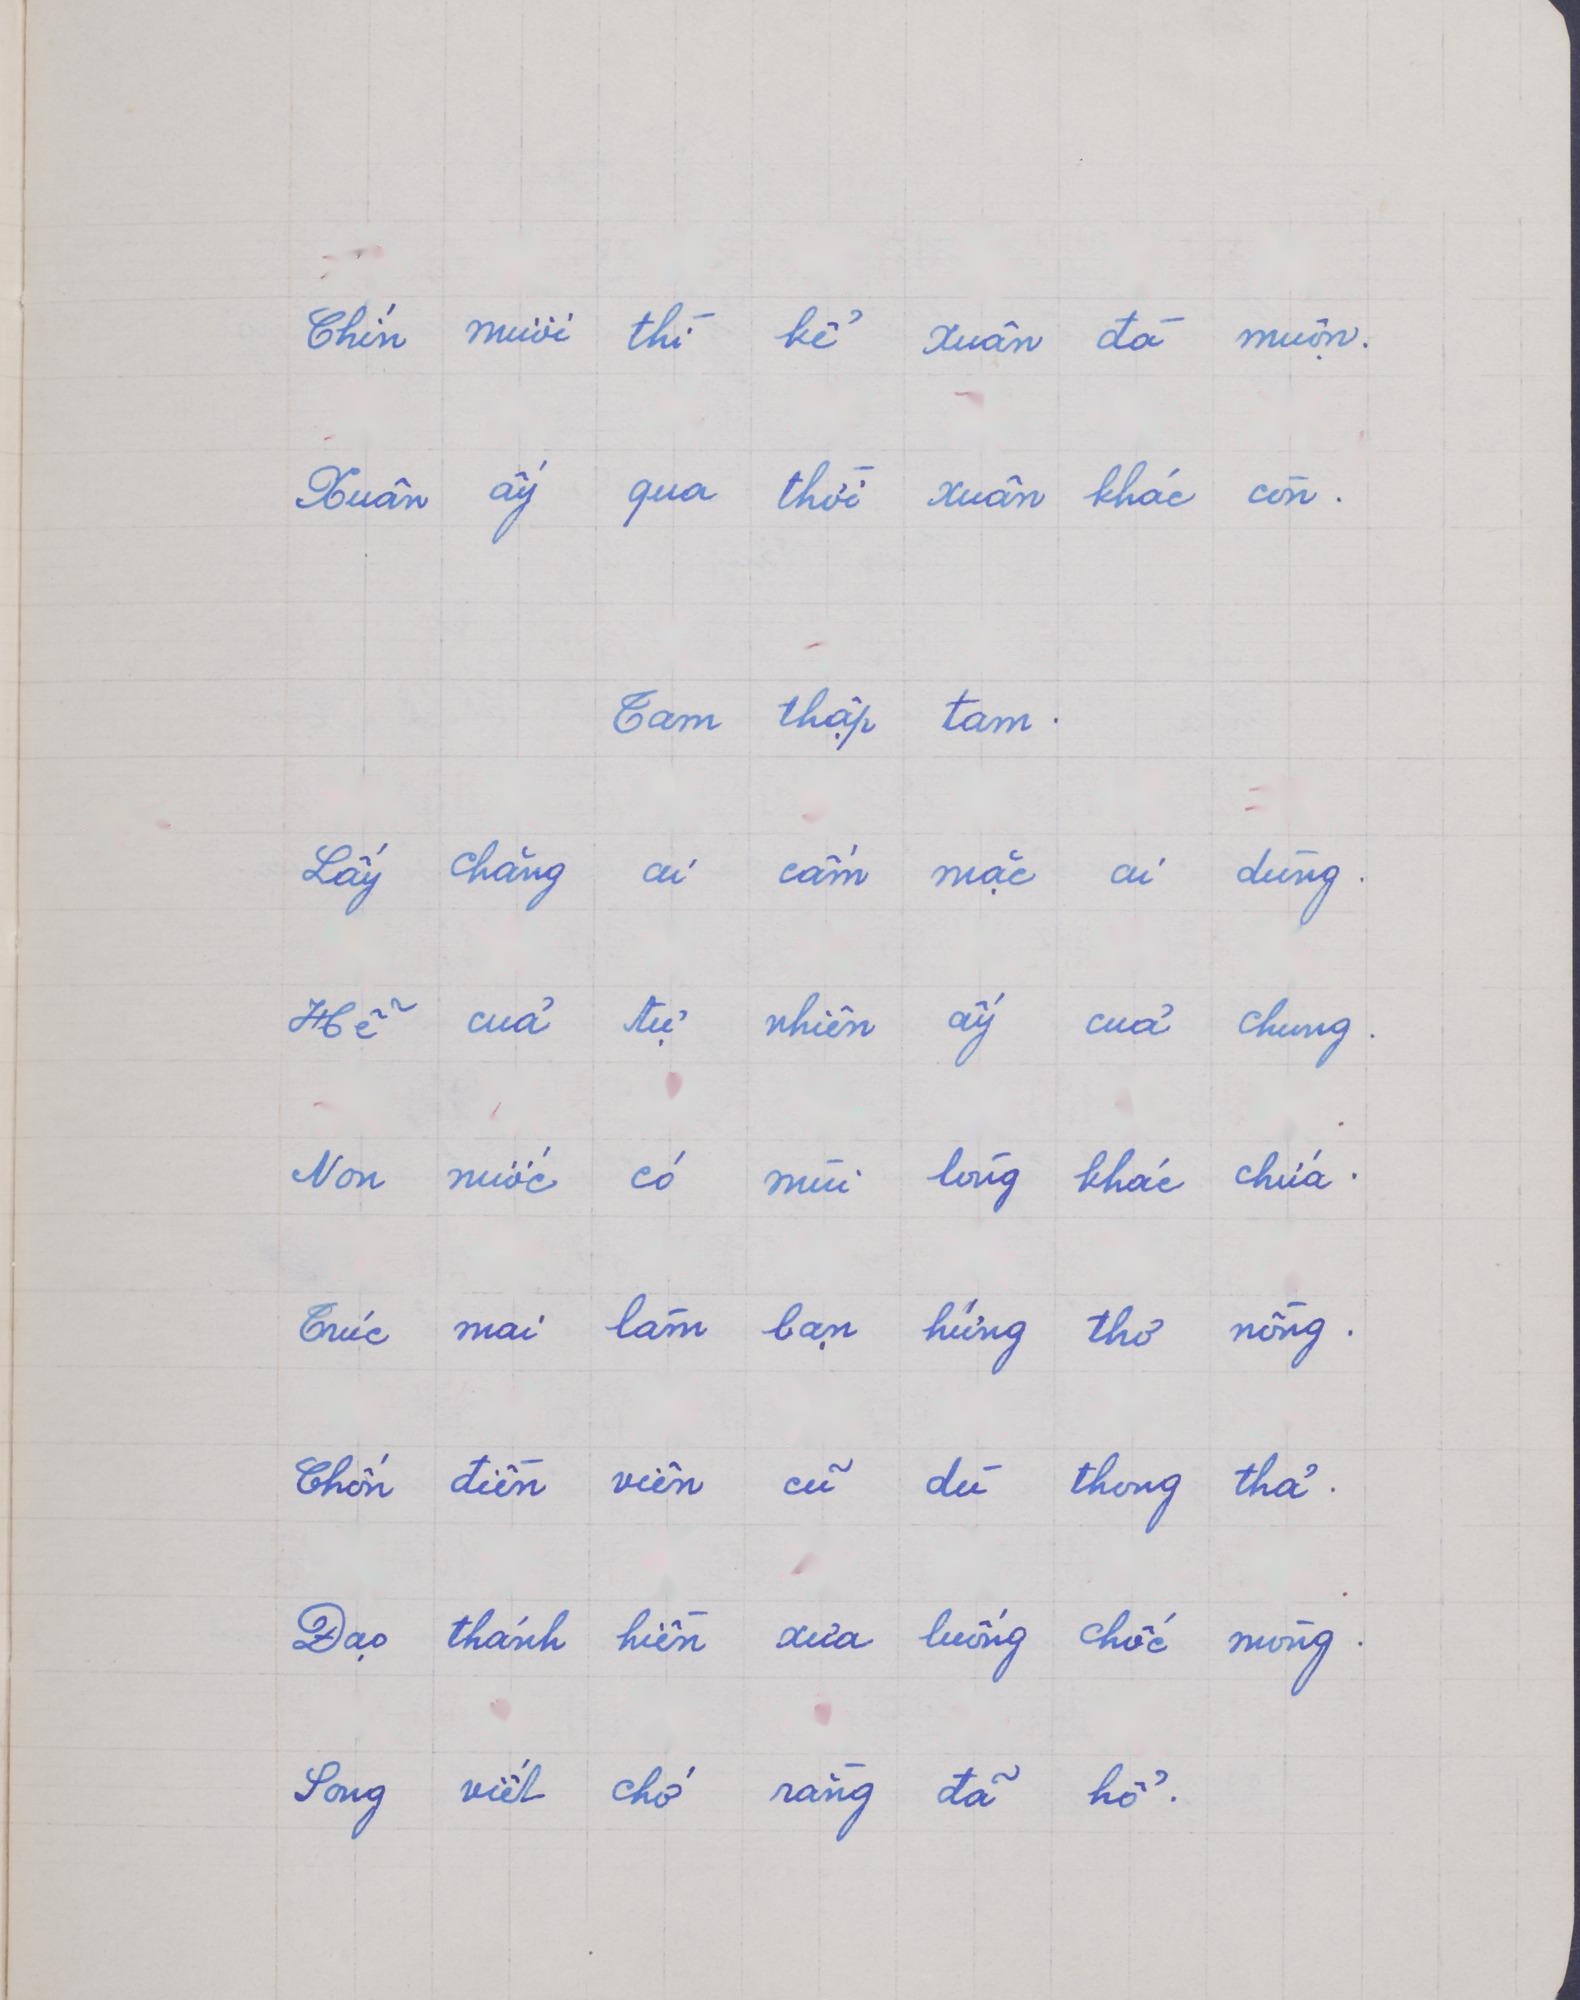 Chín mươi thì kể xuân đà muộn.
Xuân ấy qua thời xuân khác còn.
Tam thập tam.
Lấy chăng ai cấm mặc ai dùng.
Hễ của tự nhiên ấy của chung.
Non nước có mùi lòng khác chứa.
Trúc mai làm bạn hứng thơ nồng.
Chốn điền viên cũ dù thong thả.
Đạo thánh hiền xưa luống chốc mòng.
Song viết chớ rằng đã hổ.